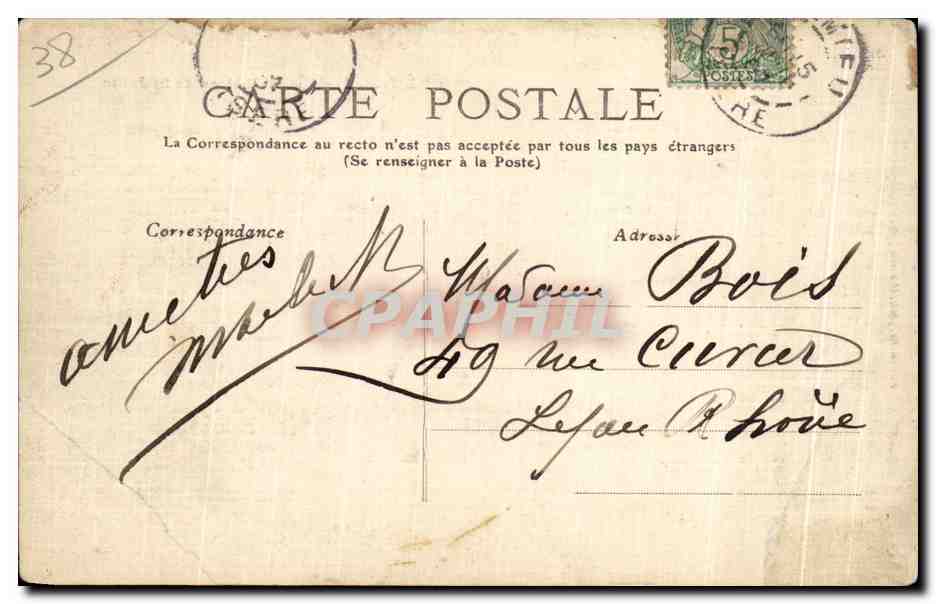 38
5
POSTES
CARTE POSTALE
La Correspondance au recto n'est pas acceptée par tous les pays étrangers
(Se renseigner à la Poste)
Correspondance
Adresse
amitiés
Madame Bois
49 rue Cuvier
Lyon Rhône
CPAPHIL